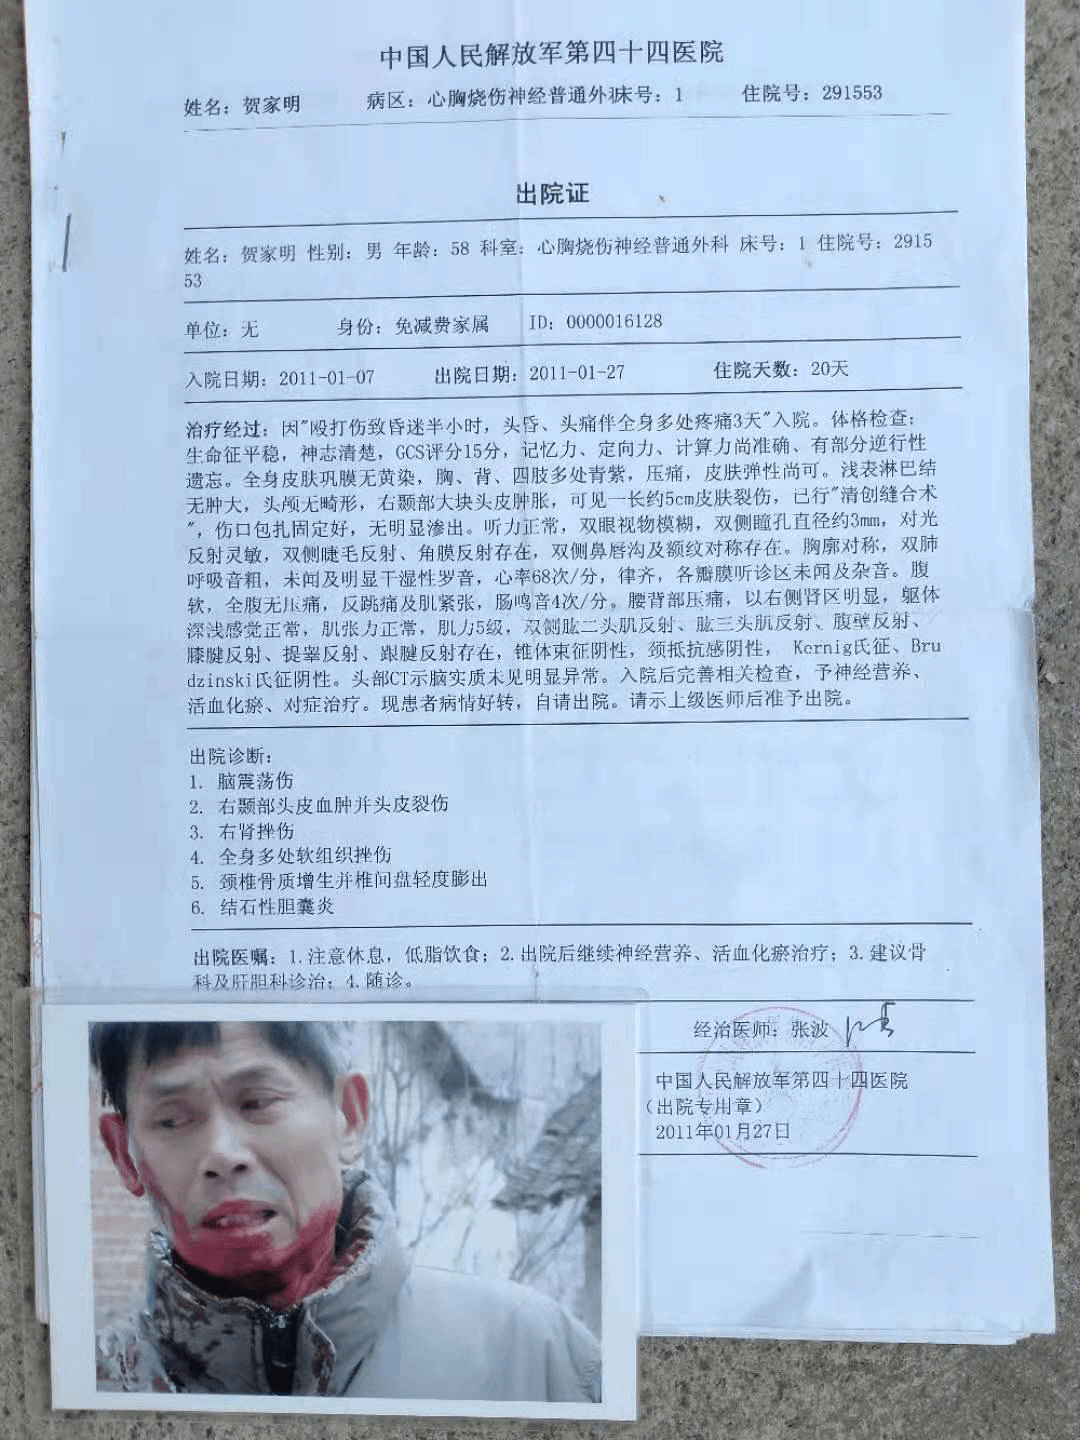 中国人民解放军第四十四医院
姓名：贺家明 病区：心胸烧伤神经普通外科床号：1 住院号：291553
出院证
姓名：贺家明 性别：男 年龄：58 科室：心胸烧伤神经普通外科 床号：1 住院号：2915
53
单位：无 身份：免减费家属 ID：0000016128
入院日期：2011-01-07 出院日期：2011-01-27 住院天数：20天
治疗经过：因"殴打伤致昏迷半小时，头昏、头痛伴全身多处疼痛3天"入院。体格检查：
生命征平稳，神志清楚，GCS评分15分，记忆力、定向力、计算力尚准确、有部分逆行性
遗忘。全身皮肤巩膜无黄染，胸、背、四肢多处青紫，压痛，皮肤弹性尚可。浅表淋巴结
无肿大，头颅无畸形，右颞部大块头皮肿胀，可见一长约5cm皮肤裂伤，已行"清创缝合术
"，伤口包扎固定好，无明显渗出。听力正常，双眼视物模糊，双侧瞳孔直径约3mm，对光
反射灵敏，双侧睫毛反射、角膜反射存在，双侧鼻唇沟及额纹对称存在。胸廓对称，双肺
呼吸音粗，未闻及明显干湿性罗音，心率68次/分，律齐，各瓣膜听诊区未闻及杂音。腹
软，全腹无压痛，反跳痛及肌紧张，肠鸣音4次/分。腰背部压痛，以右侧肾区明显，躯体
深浅感觉正常，肌张力正常，肌力5级，双侧肱二头肌反射、肱三头肌反射、腹壁反射、
膝腱反射、提睾反射、跟腱反射存在，锥体束征阴性，颈抵抗感阴性， Kernig氏征、Bru
dzinski氏征阴性。头部CT示脑实质未见明显异常。入院后完善相关检查，予神经营养、
活血化瘀、对症治疗。现患者病情好转，自请出院。请示上级医师后准予出院。
出院诊断：
1. 脑震荡伤
2. 右颞部头皮血肿并头皮裂伤
3. 右肾挫伤
4. 全身多处软组织挫伤
5. 颈椎骨质增生并椎间盘轻度膨出
6. 结石性胆囊炎
出院医嘱：1.注意休息，低脂饮食；2.出院后继续神经营养、活血化瘀治疗；3.建议骨
科及肝胆科诊治；4.随诊。
经治医师：张波
中国人民解放军第四十四医院
（出院专用章）
2011年01月27日